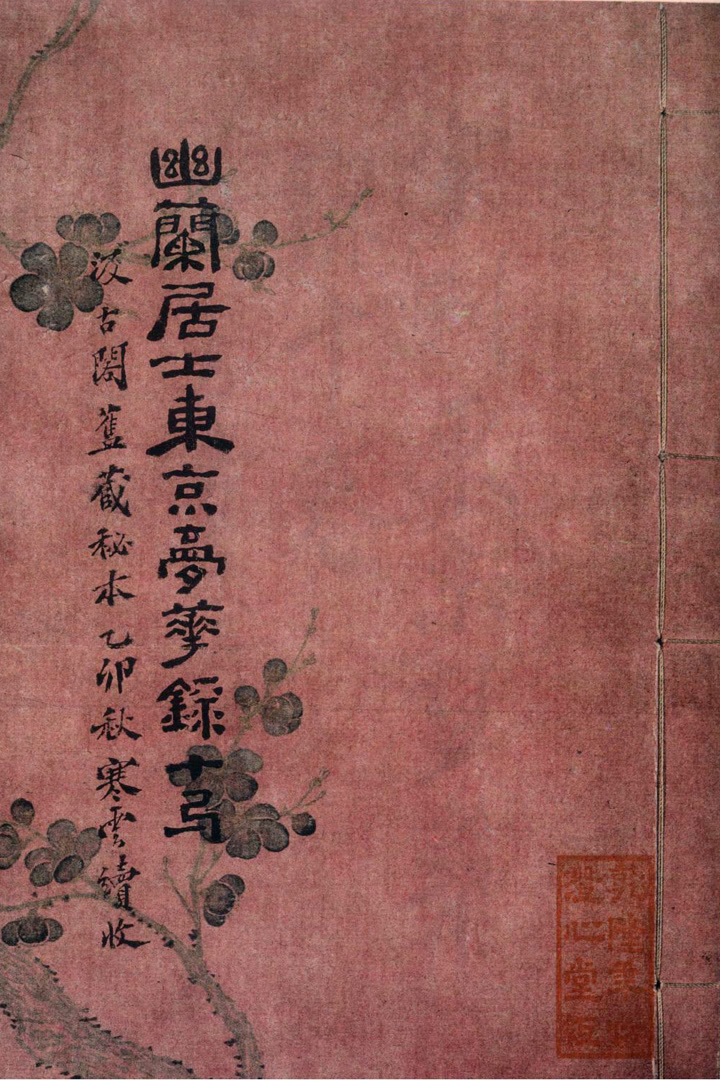 乾隆年仿
澄心堂紙
幽蘭居士東京夢華錄十
汲古閣舊藏秘本乙卯秋寒雲續收